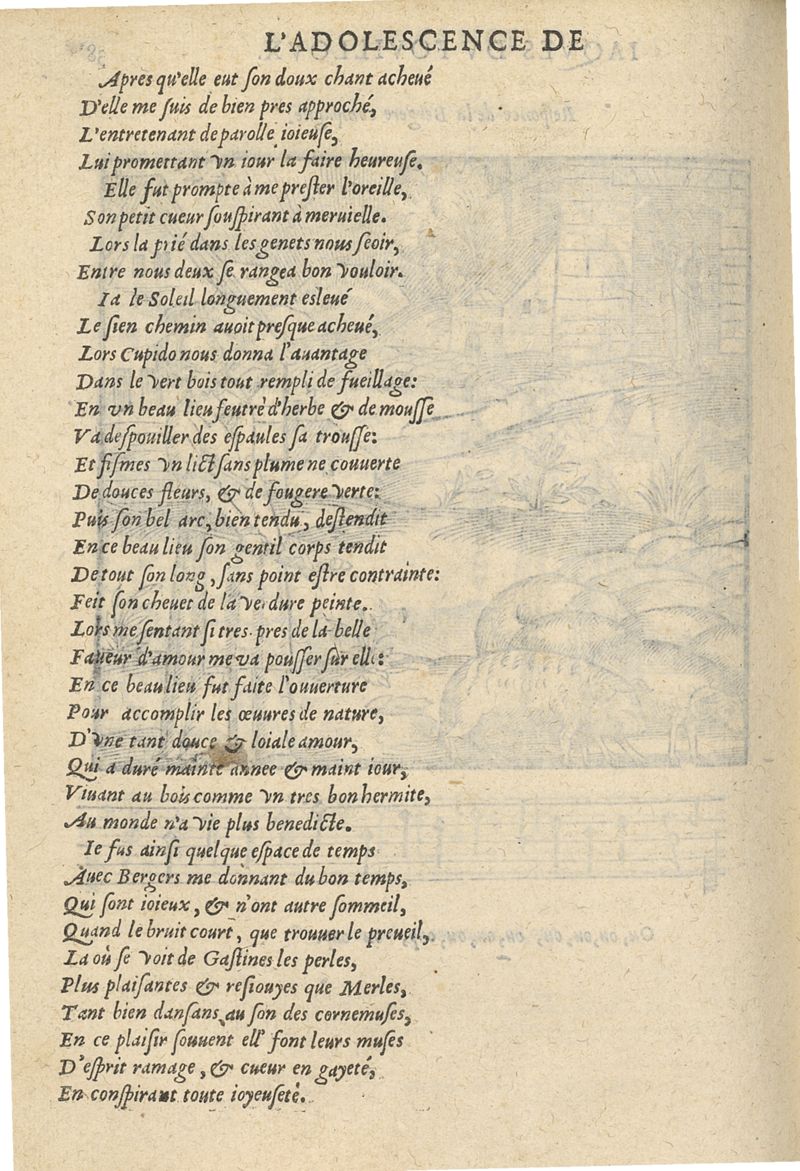 L'ADOLESCENCE DE
Apres qu'elle eut ſon doux chant acheué
D'elle me ſuis de bien pres approché,
L'entretenant de parolle ioieuſe,
Lui promettant vn iour la faire heureuſe.
Elle fut prompte à me preſter l'oreille,
Son petit cueur ſouſpirant à meruielle.
Lors la prié dans les genets nous ſeoir,
Entre nous deux ſe rangea bon vouloir.
Ia le Soleil longuement esleué
Le ſien chemin auoit preſque acheué,
Lors Cupido nous donna l'auantage
Dans le vert bois tout rempli de fueillage:
En vn beau lieu feutrè d'herbe & de mouſſe
Va deſpouiller des eſpaules ſa trouſſe:
Et fiſmes vn lict ſans plume ne couuerte
De douces fleurs, & de fougere verte:
Puis ſon bel arc, bien tendu, deſtendit
En ce beau lieu ſon gentil corps tendit
De tout ſon long, ſans point eſtre contrainte:
Feit ſon cheuet de la verdure peinte.
Lors me ſentant ſi tres pres de la belle
Faueur d'amour me va pouſſer ſur elle:
En ce beau lieu fut faite l'ouuerture
Pour accomplir les œuures de nature,
D'vne tant douce & loiale amour,
Qui a duré mainte annee & maint iour,
Viuant au bois comme vn tres bon hermite,
Au monde n'a vie plus benedicte.
Ie fus ainſi quelque eſpace de temps
Auec Bergers me donnant du bon temps,
Qui ſont ioieux, & n'ont autre ſommeil,
Quand le bruit court, que trouuer le preueil,
La où ſe voit de Gaſtines les perles,
Plus plaiſantes & reſiouyes que Merles,
Tant bien danſans au ſon des cornemuſes,
En ce plaiſir ſouuent ell' font leurs muſes
D'eſprit ramage, & cueur en gayeté,
En conſpirant toute ioyeuſeté.